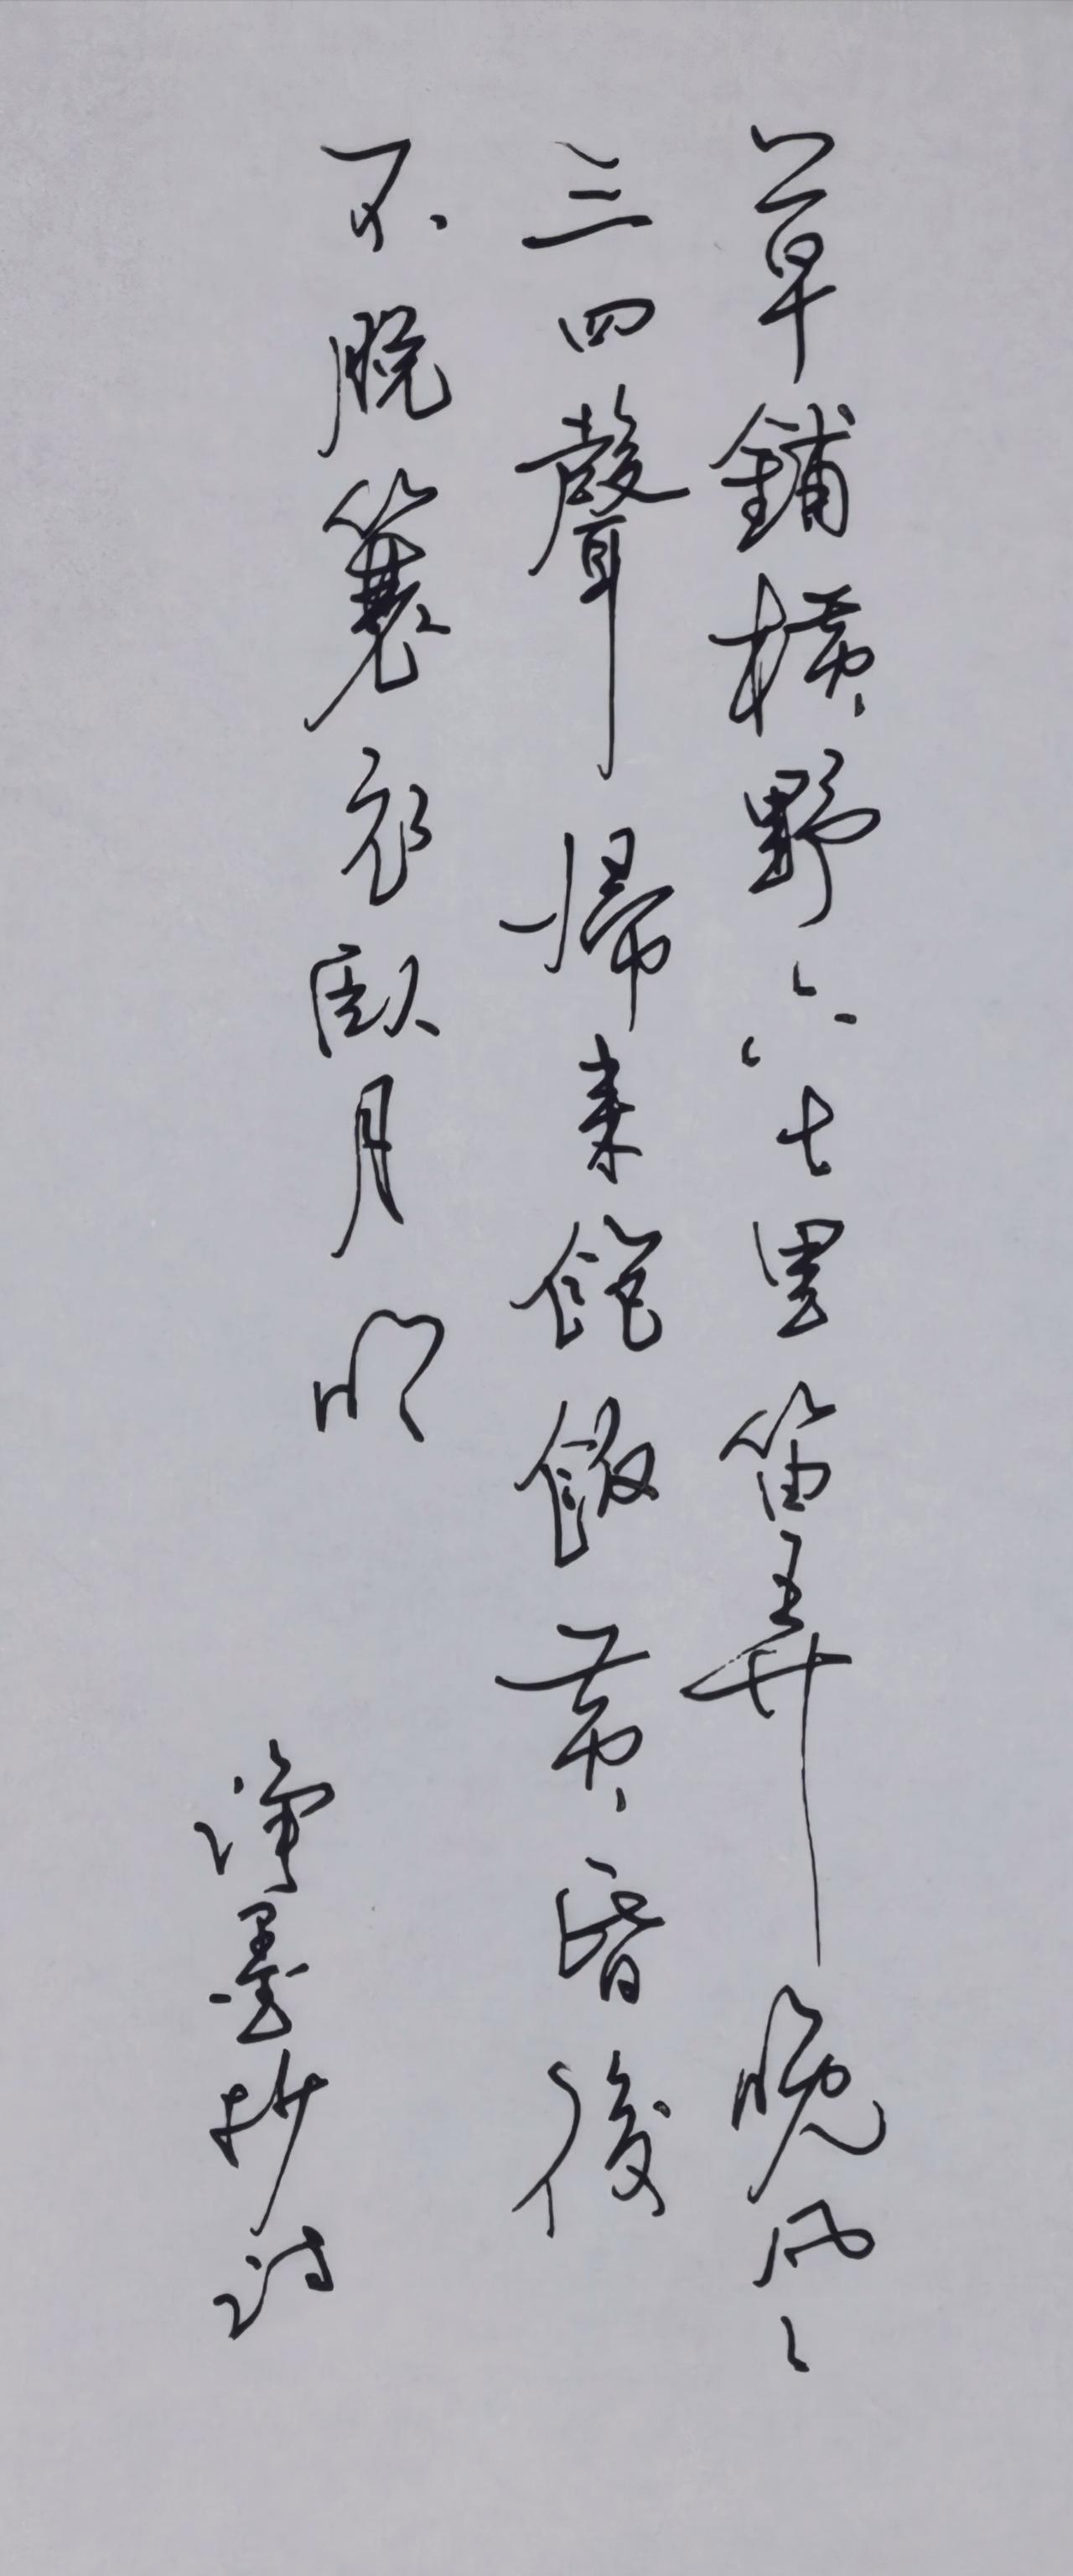 草鋪橫野六七里笛弄晚風
三四聲歸来飽飯黃昏後
不脫簑衣臥月明
淨墨抄詩